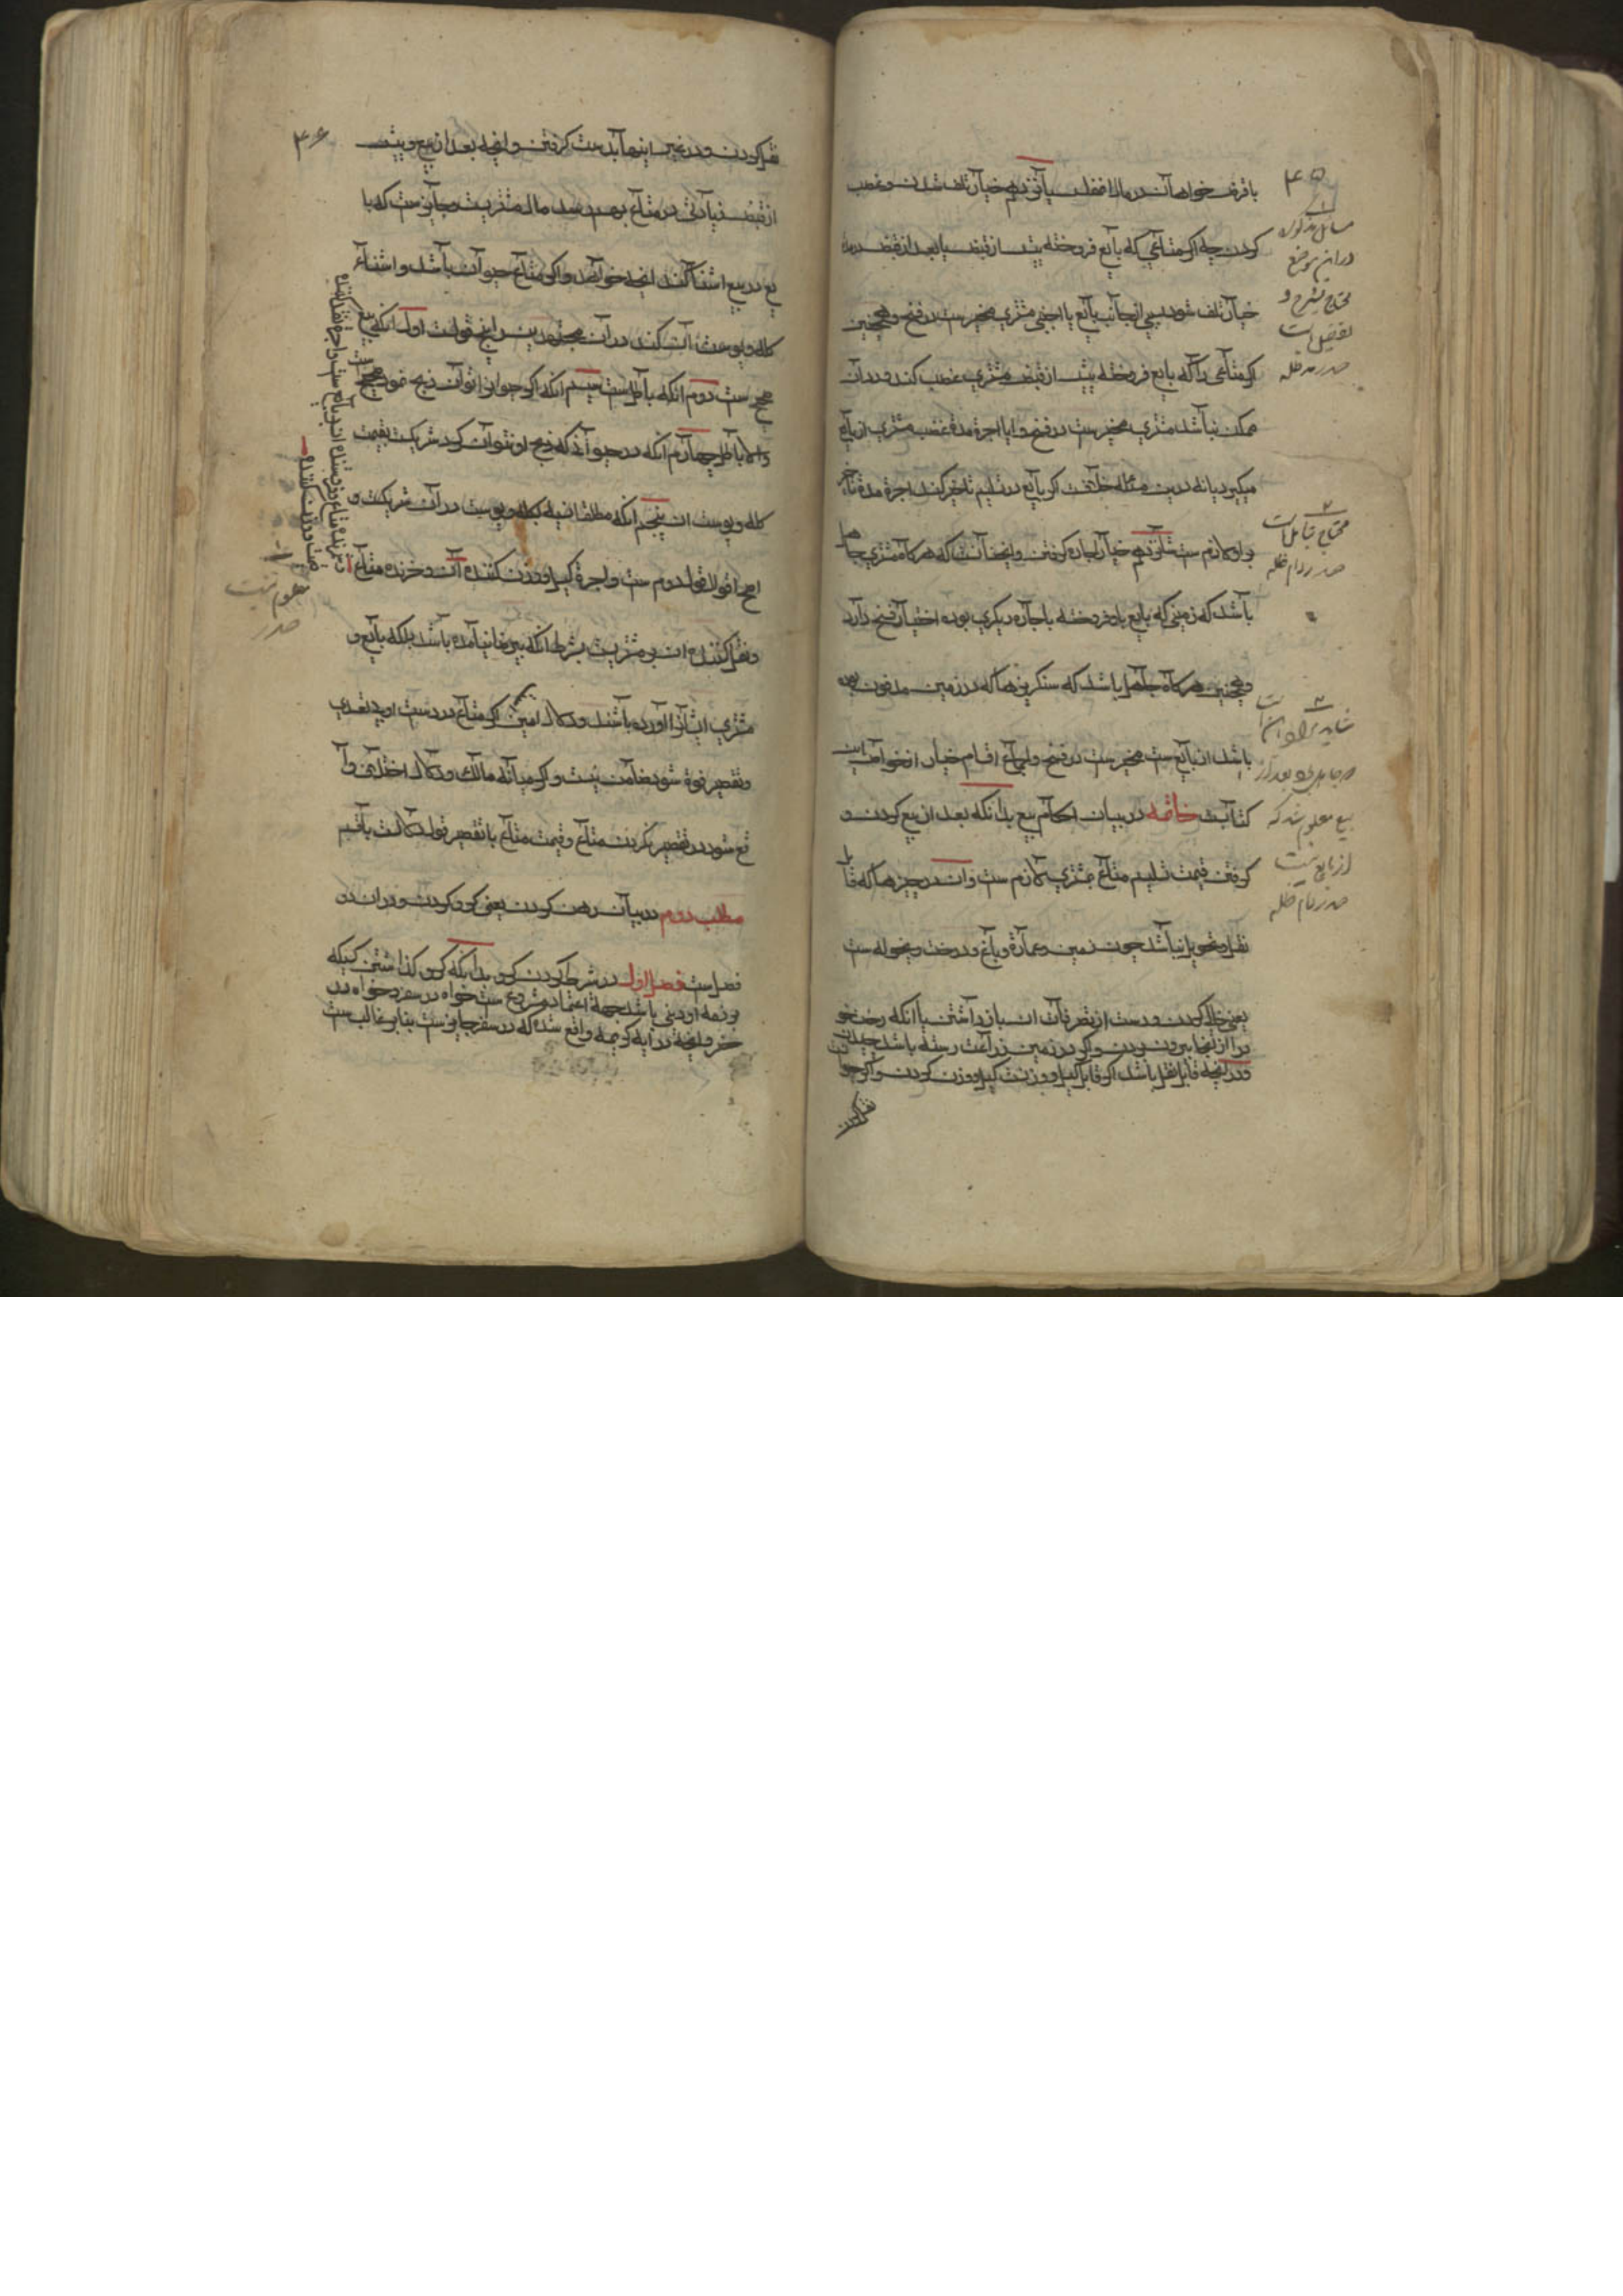 ۴۵
با قرض خواهان در مال مفلس پانزدهم خیار تلف شدن و غصب
کردن چه اگر متاعی که بایع فروخته پیش از قبض یا بعد از قبض در مدت
خیار تلف شود پس از جانب بایع یا اجنبی مشتری مخیرست در فسخ و همچنین
اگر متاعی را که بایع فروخته پیش از قبض مشتری غصب کند و رد آن
ممکن نباشد مشتری مخیرست در فسخ و ایا اجرة مدة غصب مشتری از بایع
میگیرد یا نه درین مسئله خلافست اگر بایع در تسلیم تاخیر کند اجرة مدة تاخیر
بر او لازم ست شانزدهم خیار اجاره گرفتن و این چنانست که هرگاه مشتری جاهل
باشد که زمینی که بایع باو فروخته باجاره دیگری بوده اختیار فسخ دارد
و همچنین هرگاه جاهل باشد که سنگ ریزها که در زمین مدفون بوده
باشد از بایع ست مخیرست در فسخ و این اقسام خیار از خواص این
کتابست خاتمه در بیان احکام بیع بدانکه بعد از بیع کردن و
گرفتن قیمت تسلیم متاع بمشتری لازم ست و ان در چیزها که قابل
نقل و تحویل نباشد چون زمین و عمارة و باغ و درخت و تخلیه ست
یعنی خالی کردن و دست از تصرفات ان باز داشتن با آنکه رخت خو
درا از انجا بیرون بردن و اگر در زمین زراعت رسته باشد چیدن
و در انچه قابل نقل باشد اگر قابل کیل و وزنست کیل و وزن کردن و اگر حیوا
نقل کردن
مسایل مذکوره
درین موضع
محتاج بشرح و
تفصیل است
صدر مد ظله
محتاج بتامل است
صدر دام ظله
بعد از
بیع معلوم شد که
از بایع نیست
صدر دام ظله
۴۶
نقل کردن و در غیر اینها بدست گرفتن و انچه بعد از بیع و پیش
از قبض زیادتی در متاع بهم رسد مال مشتریست و جایزست که با
یع در بیع استثنا کند انچه خواهد و اگر متاع حیوان باشد و استثناء
کله و پوست آن کند در آن مجتهدین را پنج قولست اول آنکه بیع
صحیح ست دوم آنکه باطلست سیم آنکه اگر حیوان را توان ذبح نمود صحیح ست
والا باطل چهارم آنکه در حیوانی که ذبح او نتوان کرد شریکست بقیمت
کله و پوست ان پنجم آنکه مطلقا بقیمت کله و پوست در آن شریکست و
اصح اقوال قول دوم ست و اجرة کیل و وزن کننده آن و خرنده متاع
و نقل کننده ان بر مشتریست بشرط آنکه بتبرع نیامده باشند بلکه بایع و
مشتری ایشانرا آورده باشند و دلال امین ست اگر متاع در دست او بی تعدی
و تقصیر فوة شود ضامن نیست و اگر میانه مالک و دلال اختلافی وا
قع شود در تقصیر کردن متاع و قیمت متاع با تقصیر قول دلالست با قسم
مطلب دوم در بیان رهن کردن یعنی گرو کردن و در ان دو
فصل ست فصل اول در شرط کردن گرو بدانکه گرو گذاشتن کسیکه
بر ذمه او دینی باشد جهة اعتماد مشروع ست خواه در سفر و خواه در
حضر و انچه در آیه کریمه واقع شده که در سفر جایزست بنابر غالب ست
معلوم نیست
صدر